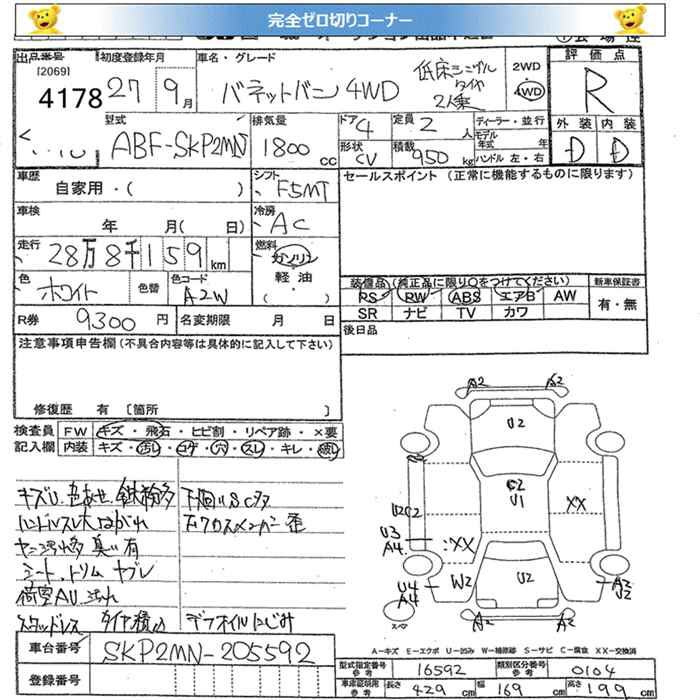 完全ゼロ切りコーナー
出品番号
[2069]
4178
初度登録年月
27 年 9月
車名・グレード
バネットバン 4WD
低床シングル
タイヤ
2人乗
2WD
4WD
評価点
R
外装 内装
D D
型式
ABF-SKP2MN
排気量
1800 cc
ドア 4
形状 CV
定員 2 人
積載 950 kg
ディーラー・並行
モデル年式 年
ハンドル 左・右
車歴
自家用・( )
シフト
F5MT
セールスポイント (正常に機能するものに限ります)
車検
年 月( 日)
冷房
AC
走行
28万8千159 km
燃料
ガソリン
軽油
( )
色
ホワイト
色替
色コード
A2W
装備品(純正品に限り○をつけてください)
新車保証書
PS PW ABS エアB AW
有・無
SR ナビ TV カワ
R券 9300 円
名変期限 月 日
後日品
注意事項申告欄(不具合内容等は具体的に記入して下さい)
修復歴 有 〔箇所 〕
検査員
記入欄
FW キズ・飛石・ヒビ割・リペア跡・×要
内装 キズ・汚レ・コゲ・穴・スレ・キレ・破レ
キズU.色あせ.鉄粉多
下廻りSC多
ハンドルスレ大
下クロスメンバー歪
ヤニ汚れ多 臭い有
シート.トリム ヤブレ
荷室AU.汚れ
スタッドレス タイヤ積込
デフオイルにじみ
A2 A2
U2
C2
U1
U2C2
XX
U3
A4
XX
U4
A4
W2
U2
A2
U2
A2 A2
スペア
A-キズ E-エクボ U-凹み W-補修跡 S-サビ C-腐食 XX-交換済
車台番号
SKP2MN-205592
登録番号
型式指定番号
参考
16592
類別区分番号
参考
0104
車庫証明用
参考
長さ 429 cm
幅 169 cm
高さ 199 cm